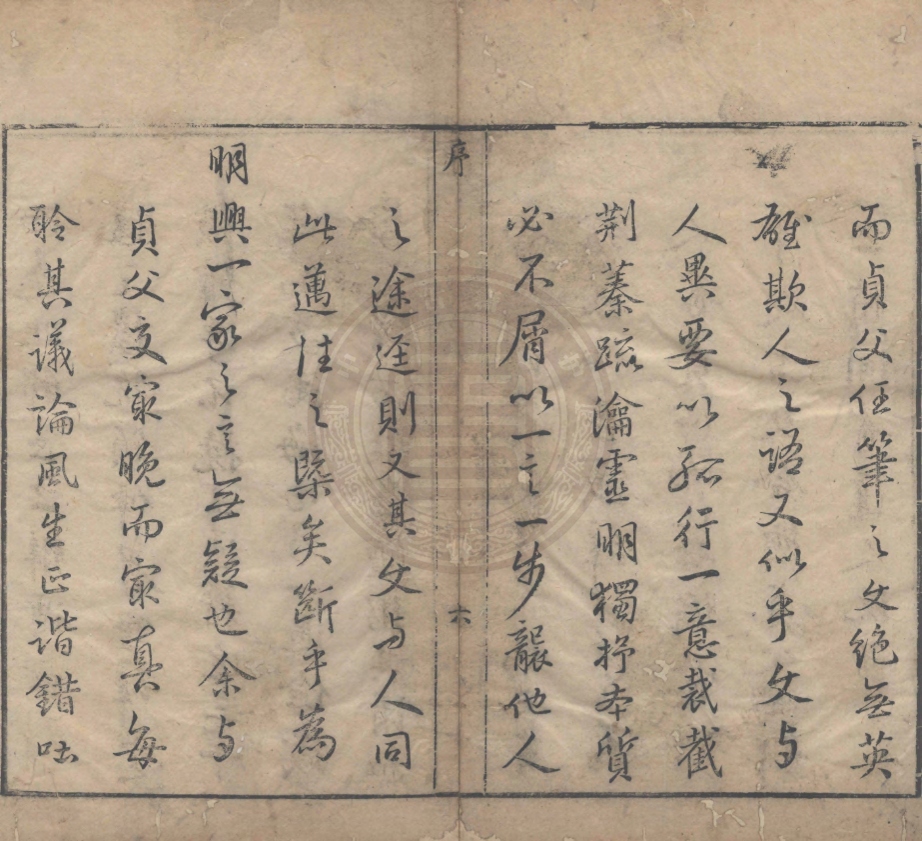 而貞父任筆之文絶無英
雄欺人之語又似乎文与
人異要以孤行一意裁截
荆蓁疏瀹靈明獨抒本質
必不屑以一言一步襲他人
序
六
之途逕則又其文与人同
此邁往之槩矣斷乎為
明興一家之言無疑也余与
貞父交㝡晚而㝡真每
聆其議論風生正谐錯吐